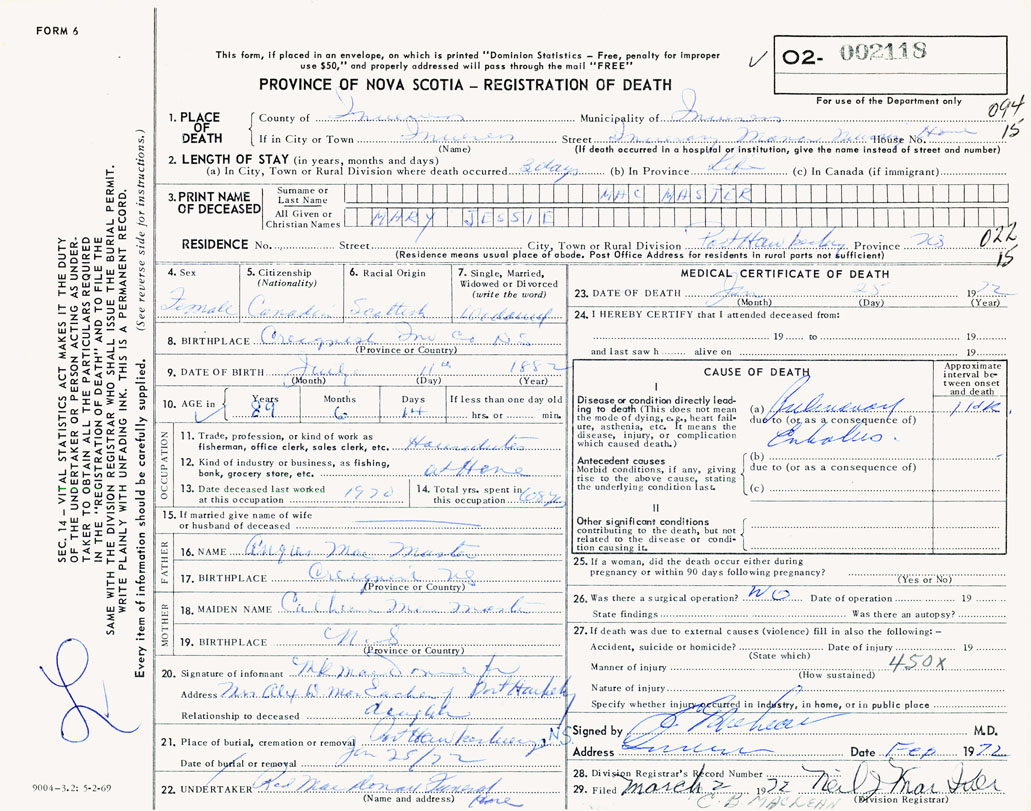 FORM 6
This form, if placed in an envelope, on which is printed "Dominion Statistics – Free, penalty for improper
use $50," and properly addressed will pass through the mail "FREE"
PROVINCE OF NOVA SCOTIA – REGISTRATION OF DEATH
02- 002118
For use of the Department only
094
15
1. PLACE OF DEATH
County of Inverness Municipality of Inverness
If in City or Town Inverness Street Inverary Manor Nursing Home House No.
(Name) (If death occurred in a hospital or institution, give the name instead of street and number)
2. LENGTH OF STAY (in years, months and days)
(a) In City, Town or Rural Division where death occurred 3 days (b) In Province Life (c) In Canada (if immigrant)
3. PRINT NAME OF DECEASED
Surname or Last Name MAC MASTER
All Given or Christian Names MARY JESSIE
RESIDENCE No. Street City, Town or Rural Division Port Hawkesbury Province NS
(Residence means usual place of abode. Post Office Address for residents in rural parts not sufficient)
022
15
4. Sex
Female
5. Citizenship
(Nationality)
Canadian
6. Racial Origin
Scottish
7. Single, Married,
Widowed or Divorced
(write the word)
Widowed
8. BIRTHPLACE Creignish Inv Co NS
(Province or Country)
9. DATE OF BIRTH July 11th 1882
(Month) (Day) (Year)
10. AGE in Years Months Days If less than one day old
89 6 14 hrs. or min.
OCCUPATION
11. Trade, profession, or kind of work as
fisherman, office clerk, sales clerk, etc.
12. Kind of industry or business, as fishing,
bank, grocery store, etc. at Home
13. Date deceased last worked
at this occupation 1970
14. Total yrs. spent in
this occupation
15. If married give name of wife
or husband of deceased
FATHER
16. NAME Angus Mac Master
17. BIRTHPLACE Creignish NS
(Province or Country)
MOTHER
18. MAIDEN NAME Catherine Mac Master
19. BIRTHPLACE N.S
(Province or Country)
20. Signature of informant
Address Mrs Alex D MacEachern Port Hawkesbury
Relationship to deceased daughter
21. Place of burial, cremation or removal Port Hawkesbury, N.S.
Date of burial or removal Jan 25/72
22. UNDERTAKER MacDonald Funeral Home
(Name and address)
MEDICAL CERTIFICATE OF DEATH
23. DATE OF DEATH Jan 25 1972
(Month) (Day) (Year)
24. I HEREBY CERTIFY that I attended deceased from:
19 to 19
and last saw h alive on 19
CAUSE OF DEATH
Approximate
interval be-
tween onset
and death
I
Disease or condition directly lead-
ing to death (This does not mean
the mode of dying, e.g., heart fail-
ure, asthenia, etc. It means the
disease, injury, or complication
which caused death.)
(a) Pulmonary
due to (or as a consequence of)
Embolus.
Antecedent causes
Morbid conditions, if any, giving
rise to the above cause, stating
the underlying condition last.
(b)
due to (or as a consequence of)
(c)
II
Other significant conditions
contributing to the death, but not
related to the disease or condi-
tion causing it.
25. If a woman, did the death occur either during
pregnancy or within 90 days following pregnancy?
(Yes or No)
26. Was there a surgical operation? NO Date of operation 19
State findings Was there an autopsy?
27. If death was due to external causes (violence) fill in also the following: –
Accident, suicide or homicide? Date of injury 19
(State which)
450X
Manner of injury
(How sustained)
Nature of injury
Specify whether injury occurred in industry, in home, or in public place
Signed by M.D.
Address Inverness Date Feb 1972
28. Division Registrar's Record Number
29. Filed March 2 1972 Neil J MacIsaac
(Division Registrar)
C B MACLEAN
SEC. 14 – VITAL STATISTICS ACT MAKES IT THE DUTY
OF THE UNDERTAKER OR PERSON ACTING AS UNDER-
TAKER TO OBTAIN ALL THE PARTICULARS REQUIRED
IN THE "REGISTRATION OF DEATH" AND TO FILE THE
SAME WITH THE DIVISION REGISTRAR WHO SHALL ISSUE THE BURIAL PERMIT.
WRITE PLAINLY WITH UNFADING INK. THIS IS A PERMANENT RECORD.
Every item of information should be carefully supplied. (See reverse side for instructions.)
9004-3.2: 5-2-69